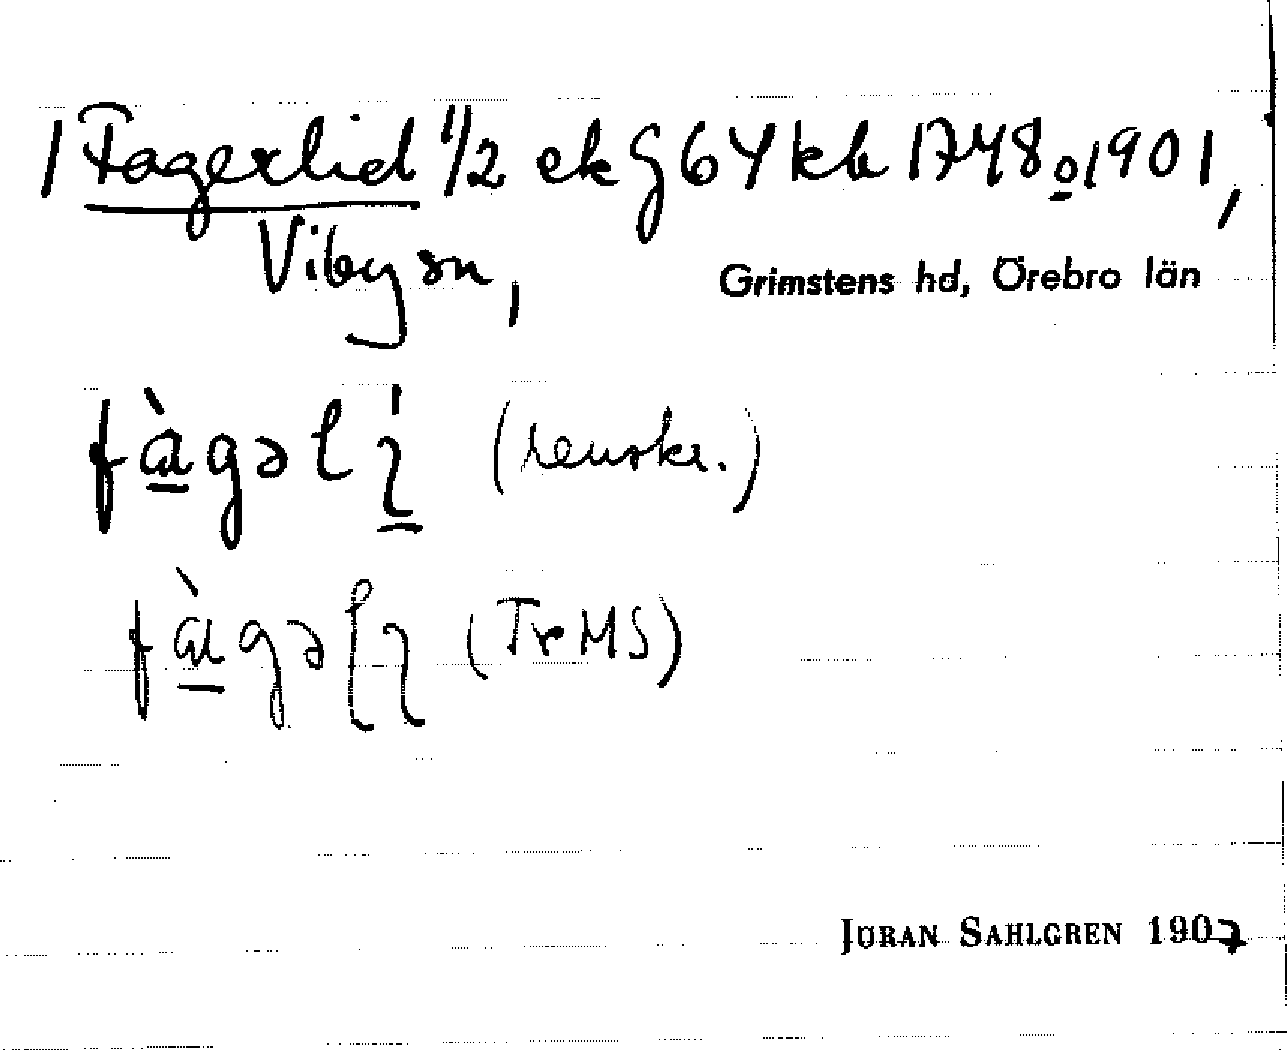 1 Fagerlid 1/2 ek G 64 kb 1748 o 1901,
Viby sn,
Grimstens hd, Örebro län
(renskr.)
(Tr MS)
JÖRAN SAHLGREN 1907